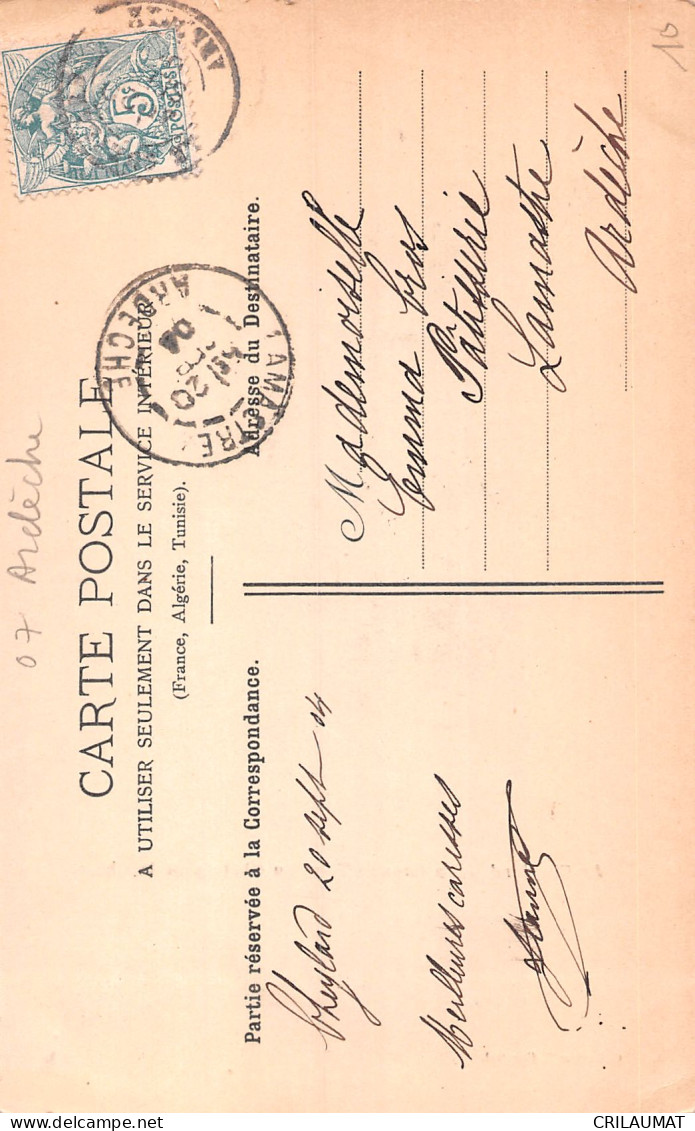 CARTE POSTALE
A UTILISER SEULEMENT DANS LE SERVICE INTÉRIEUR
(France, Algérie, Tunisie).
Partie réservée à la Correspondance.
Cheylard 20 sept 04
Meilleures caresses
Adresse du Destinataire.
Mademoiselle
Emma Cros
Patisserie
Lamastre
Ardèche
5c
POSTES
LAMASTRE
ARDECHE
20
04
07 Ardèche
10
CRILAUMAT